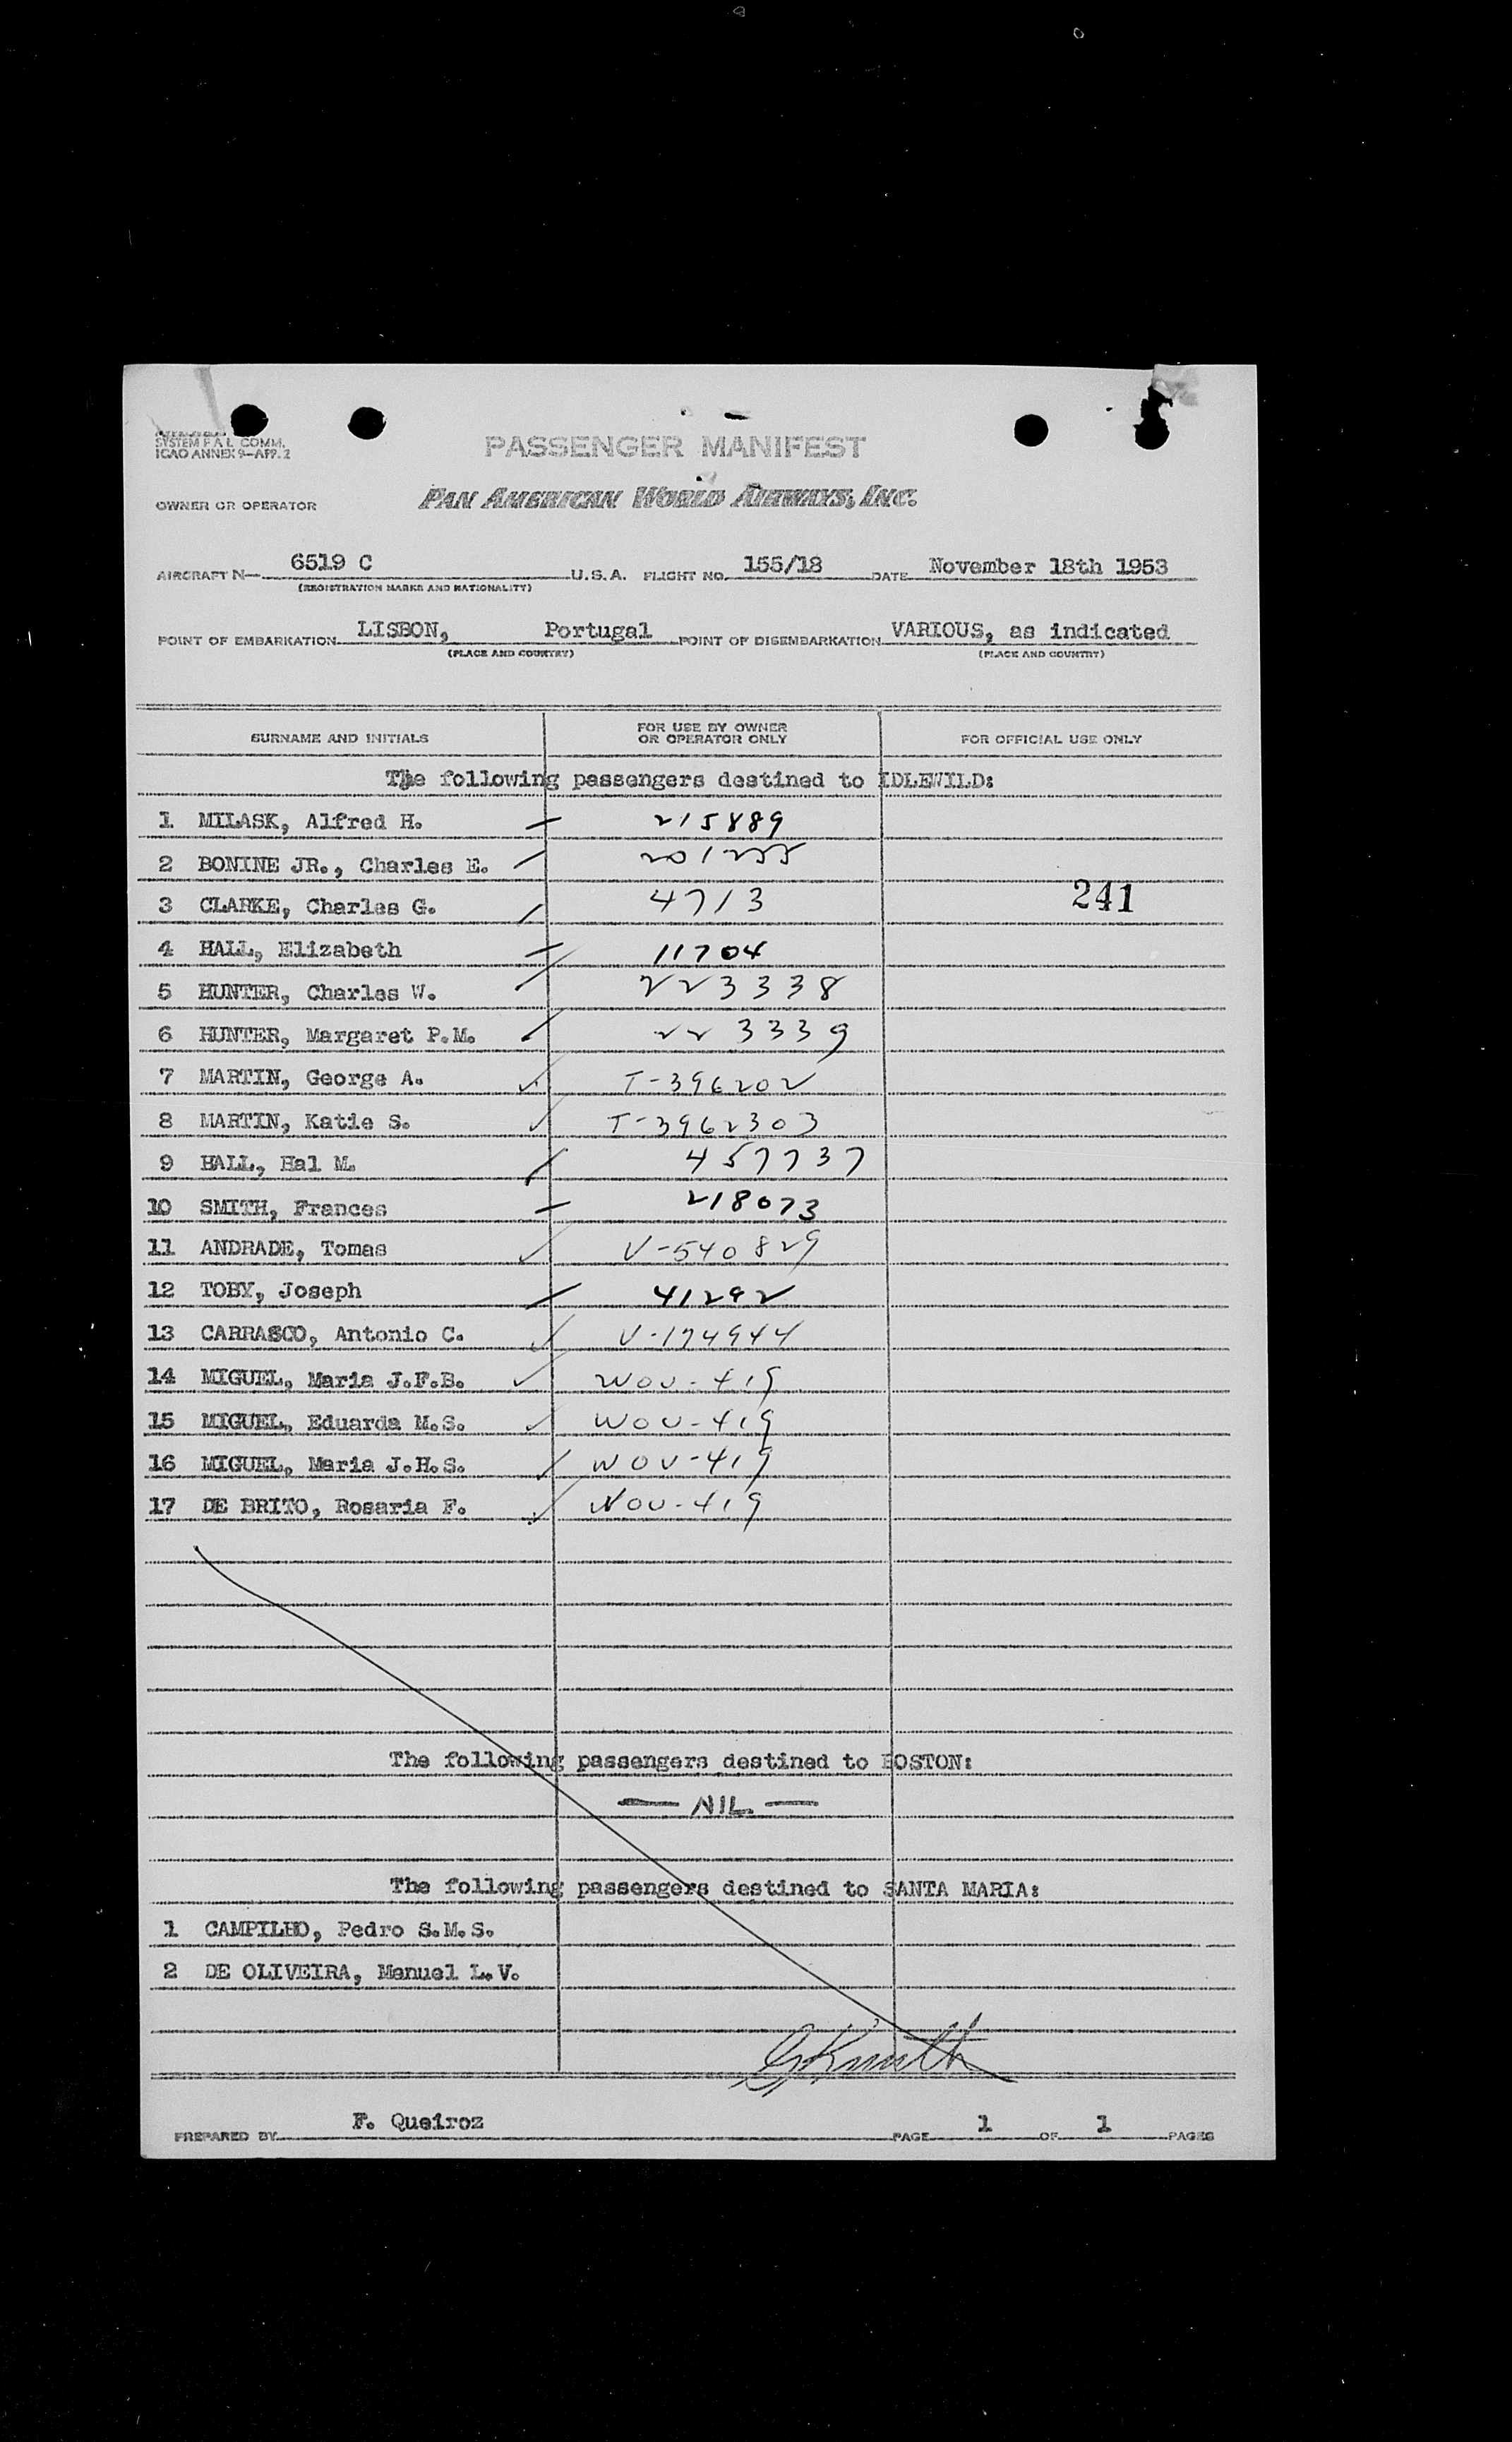 SYSTEM F A L COMM.
ICAO ANNEX 9—APP. 2
PASSENGER MANIFEST
OWNER OR OPERATOR PAN AMERICAN WORLD AIRWAYS, INC.
AIRCRAFT N— 6519 C U.S.A. FLIGHT NO. 155/18 DATE November 18th 1953
(REGISTRATION MARKS AND NATIONALITY)
POINT OF EMBARKATION LISBON, Portugal POINT OF DISEMBARKATION VARIOUS, as indicated
(PLACE AND COUNTRY) (PLACE AND COUNTRY)
SURNAME AND INITIALS FOR USE BY OWNER OR OPERATOR ONLY FOR OFFICIAL USE ONLY
The following passengers destined to IDLEWILD:
1 MILASK, Alfred H. 215889
2 BONINE JR., Charles E. 201255
3 CLARKE, Charles G. 4713 241
4 HALL, Elizabeth 11704
5 HUNTER, Charles W. 223338
6 HUNTER, Margaret P.M. 223339
7 MARTIN, George A. T-396202
8 MARTIN, Katie S. T-3962303
9 HALL, Hal M. 457737
10 SMITH, Frances 218073
11 ANDRADE, Tomas V-540829
12 TOBY, Joseph 41292
13 CARRASCO, Antonio C. V-174944
14 MIGUEL, Maria J.F.B. WOU-419
15 MIGUEL, Eduarda M.S. WOU-419
16 MIGUEL, Maria J.H.S. WOU-419
17 DE BRITO, Rosaria F. WOU-419
The following passengers destined to BOSTON:
— NIL —
The following passengers destined to SANTA MARIA:
1 CAMPILHO, Pedro S.M.S.
2 DE OLIVEIRA, Manuel L.V.
PREPARED BY F. Queiroz PAGE 1 OF 1 PAGES